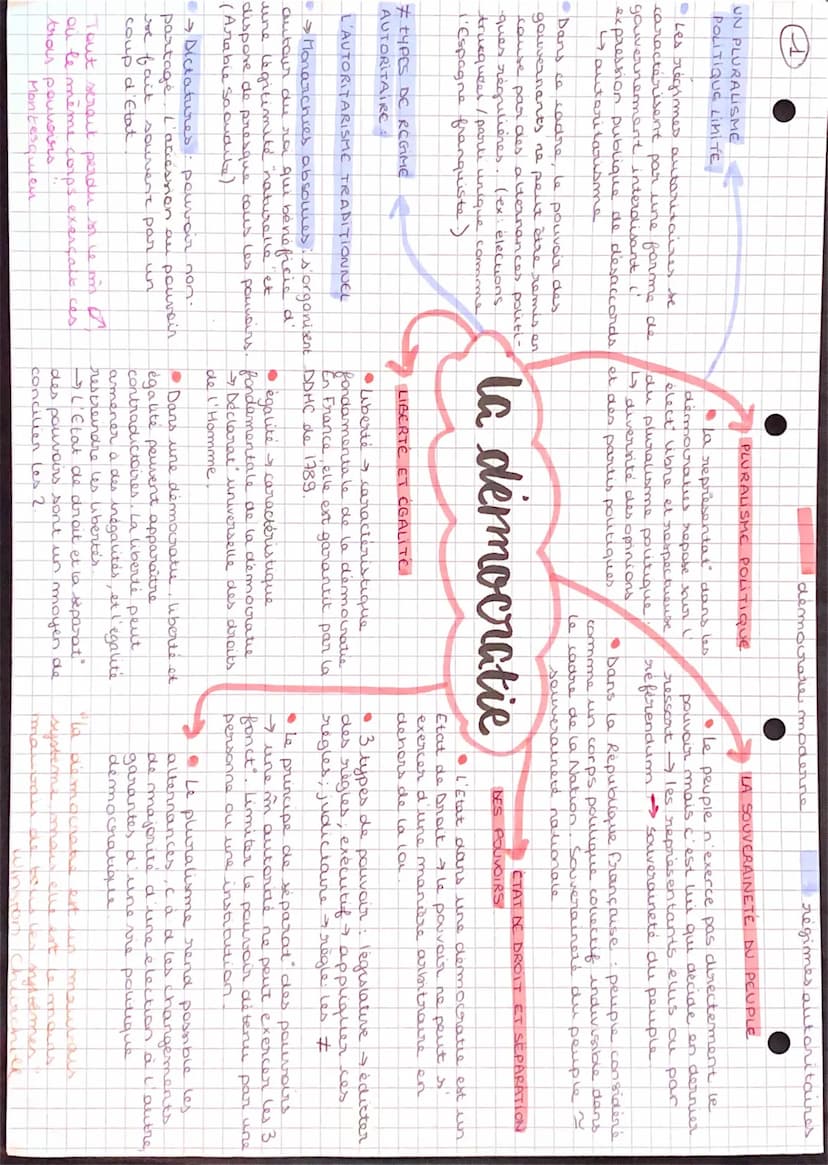 1
démocratie moderne
régimes autoritaires
la démocratie
UN PLURALISME
POLITIQUE LIMITÉ
• Les régimes autoritaires se
caractérisent par une forme de
gouvernement interdisant l'
expression publique de désaccords
↳ autoritarisme
• Dans ce cadre, le pouvoir des
gouvernants ne peut être remis en
cause par des alternances politi-
ques régulières. (ex: élections
truquées / parti unique comme
l'Espagne franquiste)
≠ TYPES DE RÉGIME
AUTORITAIRE :
L'AUTORITARISME TRADITIONNEL
• → Monarchies absolues : s'organisent
autour du roi qui bénéficie d'
une légitimité "naturelle" et
dispose de presque tous les pouvoirs.
(Arabie Saoudite)
• → Dictatures : pouvoir non-
partagé. L'accession au pouvoir
se fait souvent par un
coup d'Etat
Tout serait perdu si le m̂ ♂,
ou le même corps exerçait ces
trois pouvoirs
Montesquieu
PLURALISME POLITIQUE
• La représentat° dans les
démocraties repose sur l'
élect° libre et respectueuse
du pluralisme politique.
↳ diversité des opinions
et des partis politiques
LIBERTÉ ET ÉGALITÉ
• Liberté → caractéristique
fondamentale de la démocratie
En France, elle est garantit par la
DDHC de 1789
• égalité → caractéristique
fondamentale de la démocratie
→ Déclarat° universelle des droits
de l'Homme.
• Dans une démocratie, liberté et
égalité peuvent apparaître
contradictoires. La liberté peut
amener à des inégalités, et l'égalité
restreindre les libertés.
→ L'Etat de droit et la séparat°
des pouvoirs sont un moyen de
concilier les 2.
LA SOUVERAINETÉ DU PEUPLE
• Le peuple n'exerce pas directement le
pouvoir mais c'est lui qui décide en dernier
ressort → les représentants élus ou par
référendum → souveraineté du peuple
• Dans la République Française : peuple considéré
comme un corps politique collectif indivisible dans
le cadre de la Nation. Souveraineté du peuple ≃
souveraineté nationale
ÉTAT DE DROIT ET SÉPARATION
DES POUVOIRS
• L'État dans une démocratie est un
Etat de Droit → le pouvoir ne peut s'
exercer d'une manière arbitraire en
dehors de la loi.
• 3 types de pouvoir : législative → édicter
des règles ; exécutif → appliquer ces
règles ; judiciaire → règle les ≠
• Le principe de séparat° des pouvoirs
→ une m̂ autorité ne peut exercer les 3
fonct°. Limiter le pouvoir détenu par une
personne ou une institution.
• Le pluralisme rend possible les
alternances, c à d les changements
de majorité d'une élection à l'autre,
garantes d'une vie politique
démocratique
"La démocratie est un mauvais
système mais elle est le moins
mauvais de tous les systèmes"
Winston Churchill